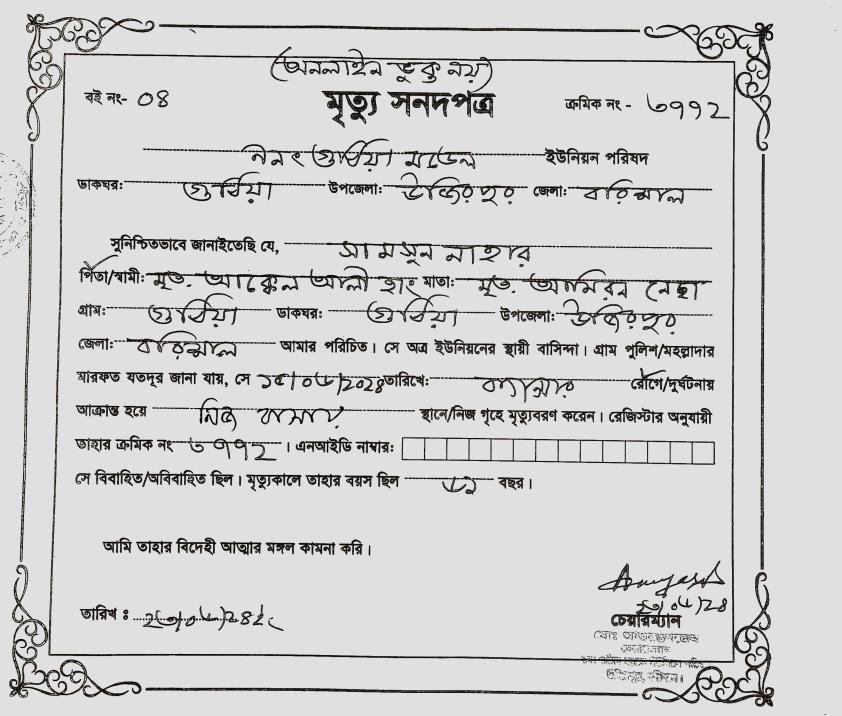 (অনলাইন ভুক্ত নয়)
বই নং- 08 মৃত্যু সনদপত্র ক্রমিক নং - ৬৭৭২
গুঠিয়া মডেল ইউনিয়ন পরিষদ
ডাকঘর: গুঠিয়া উপজেলা: উজিরপুর জেলা: বরিশাল
সুনিশ্চিতভাবে জানাইতেছি যে, সামসুন নাহার
পিতা/স্বামী: মৃত. আক্কেল আলী হাং মাতা: মৃত. আমিরন নেছা
গ্রাম: গুঠিয়া ডাকঘর: গুঠিয়া উপজেলা: উজিরপুর
জেলা: বরিশাল আমার পরিচিত। সে অত্র ইউনিয়নের স্থায়ী বাসিন্দা। গ্রাম পুলিশ/মহল্লাদার
মারফত যতদূর জানা যায়, সে তারিখে: ক্যান্সার রোগে/দুর্ঘটনায়
আক্রান্ত হয়ে নিজ বাসায় স্থানে/নিজ গৃহে মৃত্যুবরণ করেন। রেজিস্টার অনুযায়ী
তাহার ক্রমিক নং ৬৭৭২। এনআইডি নাম্বার:
সে বিবাহিত/অবিবাহিত ছিল। মৃত্যুকালে তাহার বয়স ছিল বছর।
আমি তাহার বিদেহী আত্মার মঙ্গল কামনা করি।
তারিখ :
চেয়ারম্যান